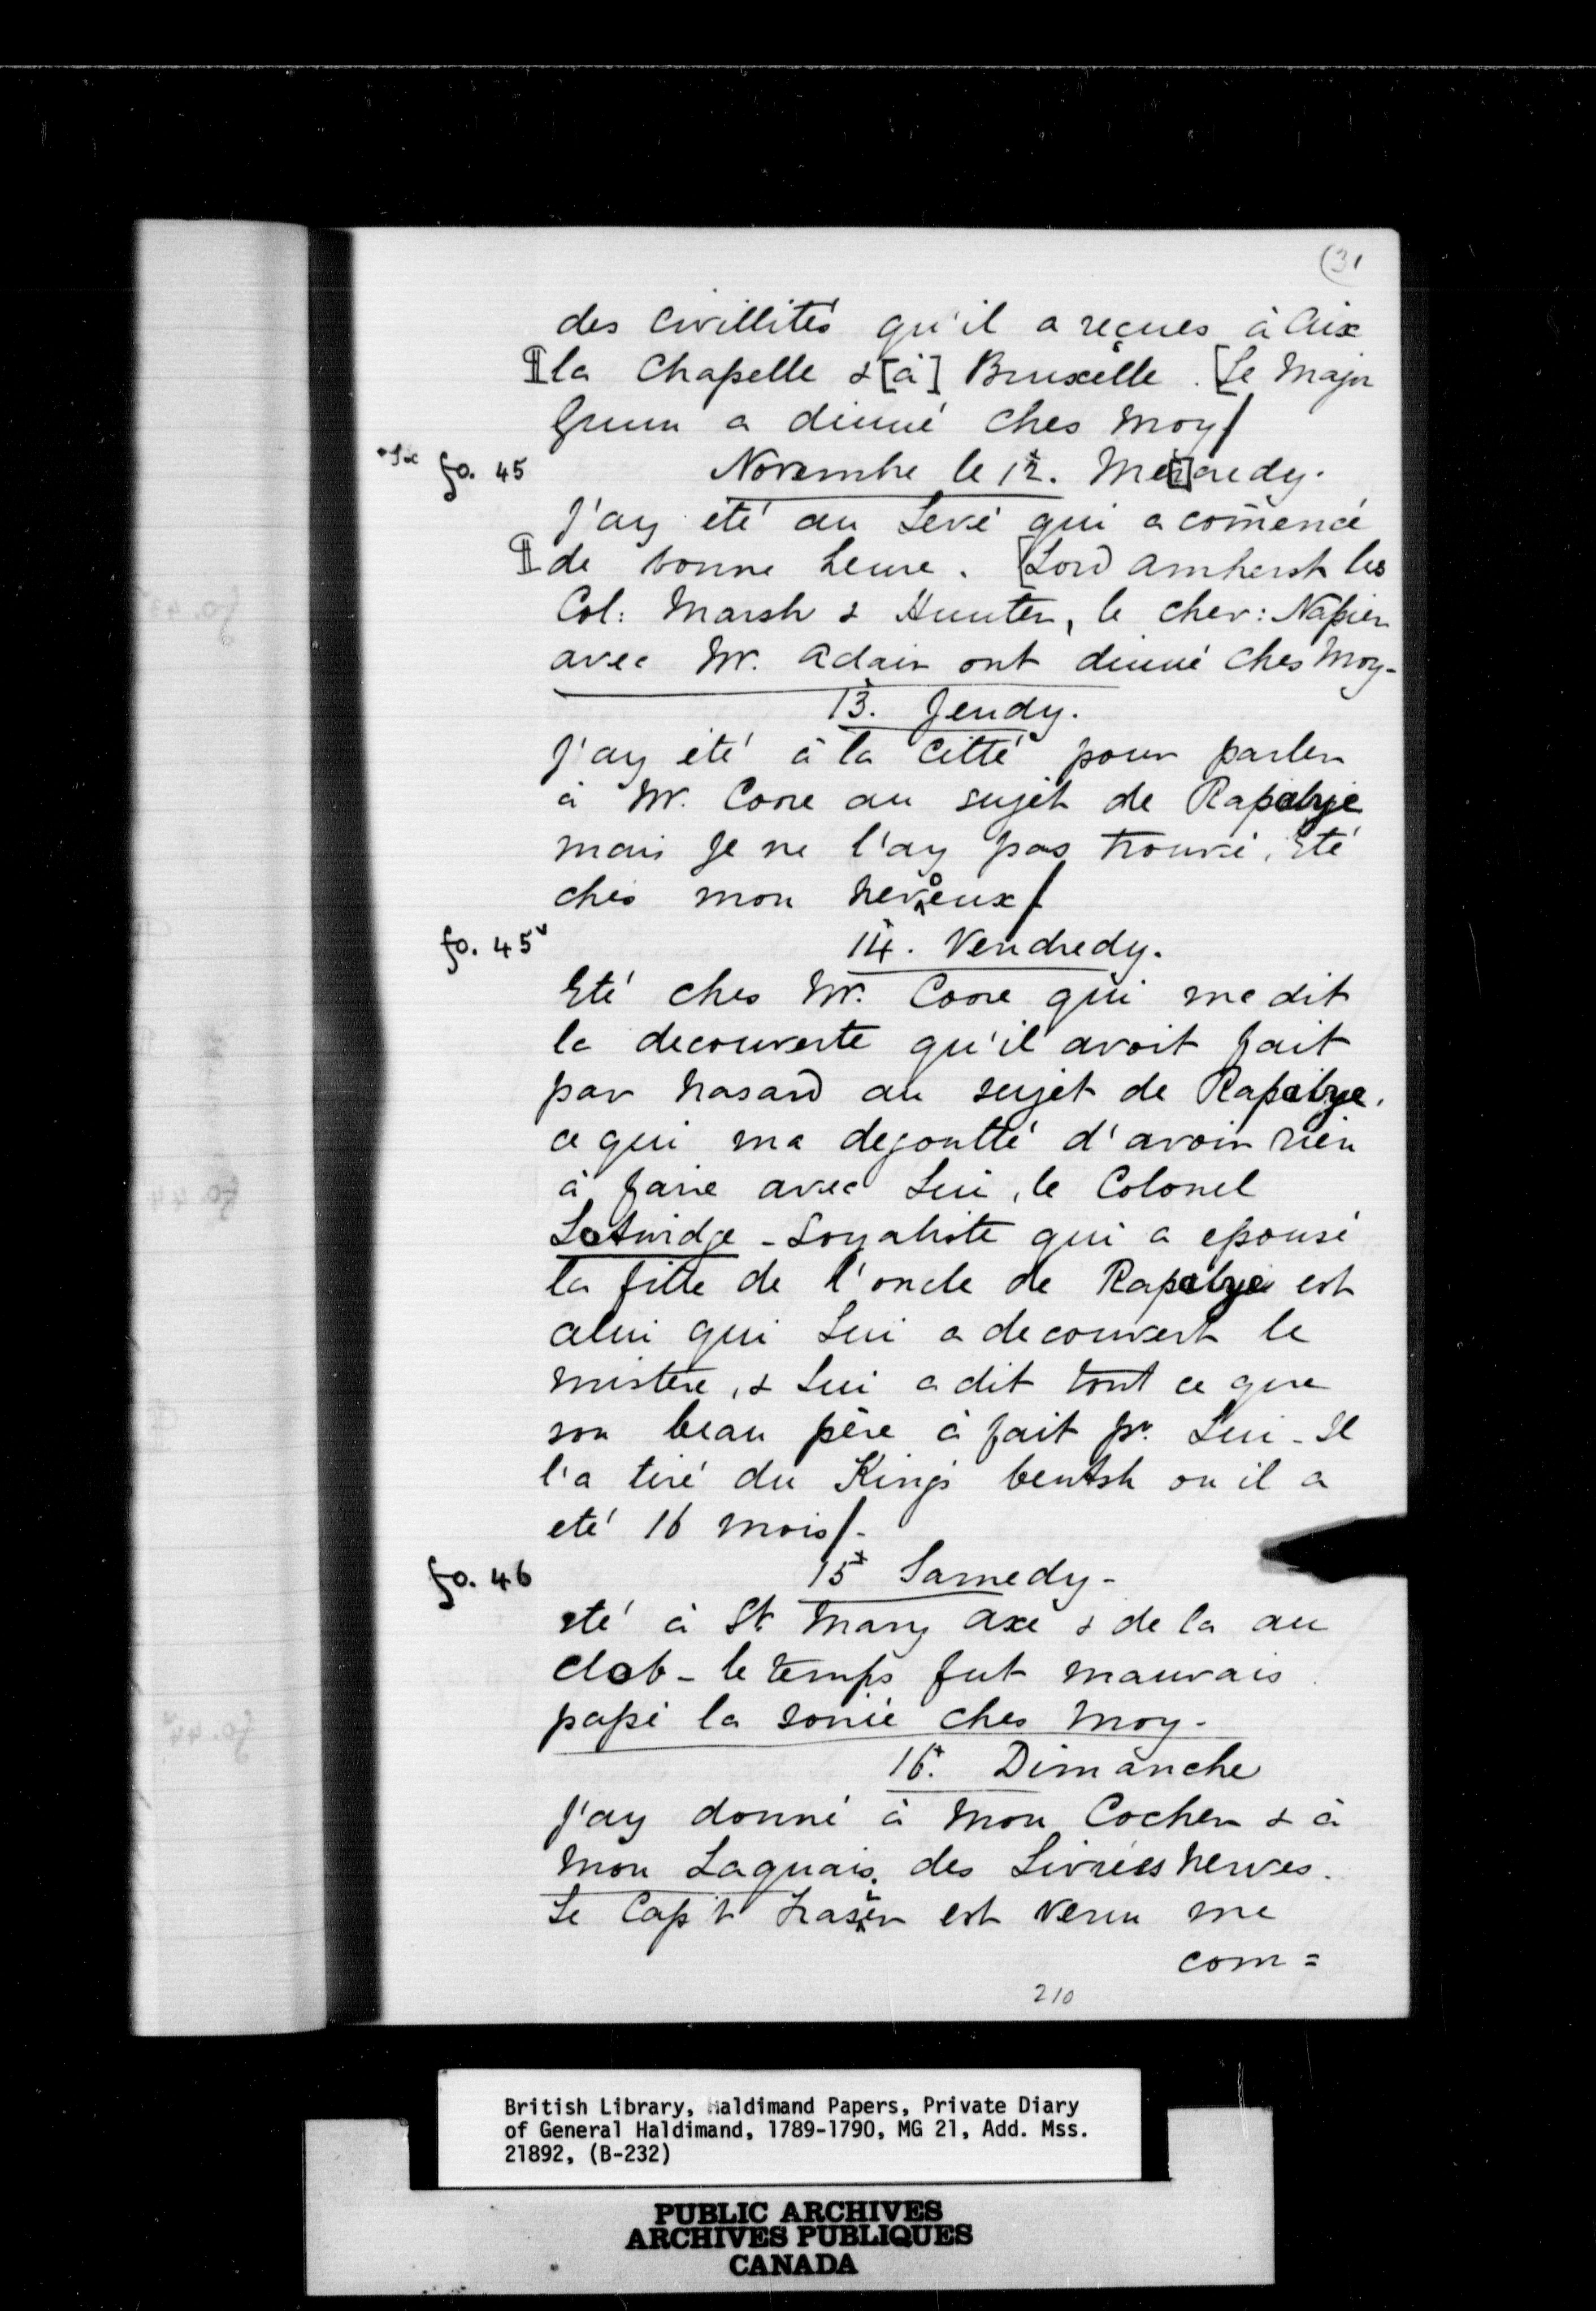 (31
des Civillités qu'il a reçues à Aix
la Chapelle & [à] Bruxelle. [Le Major
Gunn a dinné ches moy/
fo. 45 Novembre le 12. Mercredy.
J'ay été au Levé qui a comencé
de bonne heure. [Lord Amherst les
Col: Marsh & Hunter, le chev: Napier
avec Mr. Adair ont dinné ches moy-
13. Jeudy.
J'ay été à la Citté pour parler
à Mr. Core au sujet de Rapelye
mais Je ne l'ay pas trouvé, Eté
chés mon neveux/
fo. 45v 14. Vendredy.
Eté ches Mr. Core qui me dit
la decouverte qu'il avoit fait
par hasard au sujet de Rapelye.
ce qui ma degoutté d'avoir rien
à faire avec Lui, le Colonel
Lotwidge - Loyaliste qui a epousé
la fille de l'oncle de Rapelye est
celui qui Lui a decouvert le
mistere, & Lui a dit tout ce que
son beau père à fait pr. Lui - Il
l'a tiré du King's bentsh ou il a
eté 16 mois/-
fo. 46 15 Samedy -
eté à St Mary Axe & de la au
clob - le temps fut mauvais
passé la soriée ches moy -
16. Dimanche
J'ay donné à mon Cocher & à
mon Laquais, des Livrées neuves.
Le Capt fraser est venu me
com =
210
British Library, Haldimand Papers, Private Diary
of General Haldimand, 1789-1790, MG 21, Add. Mss.
21892, (B-232)
PUBLIC ARCHIVES
ARCHIVES PUBLIQUES
CANADA